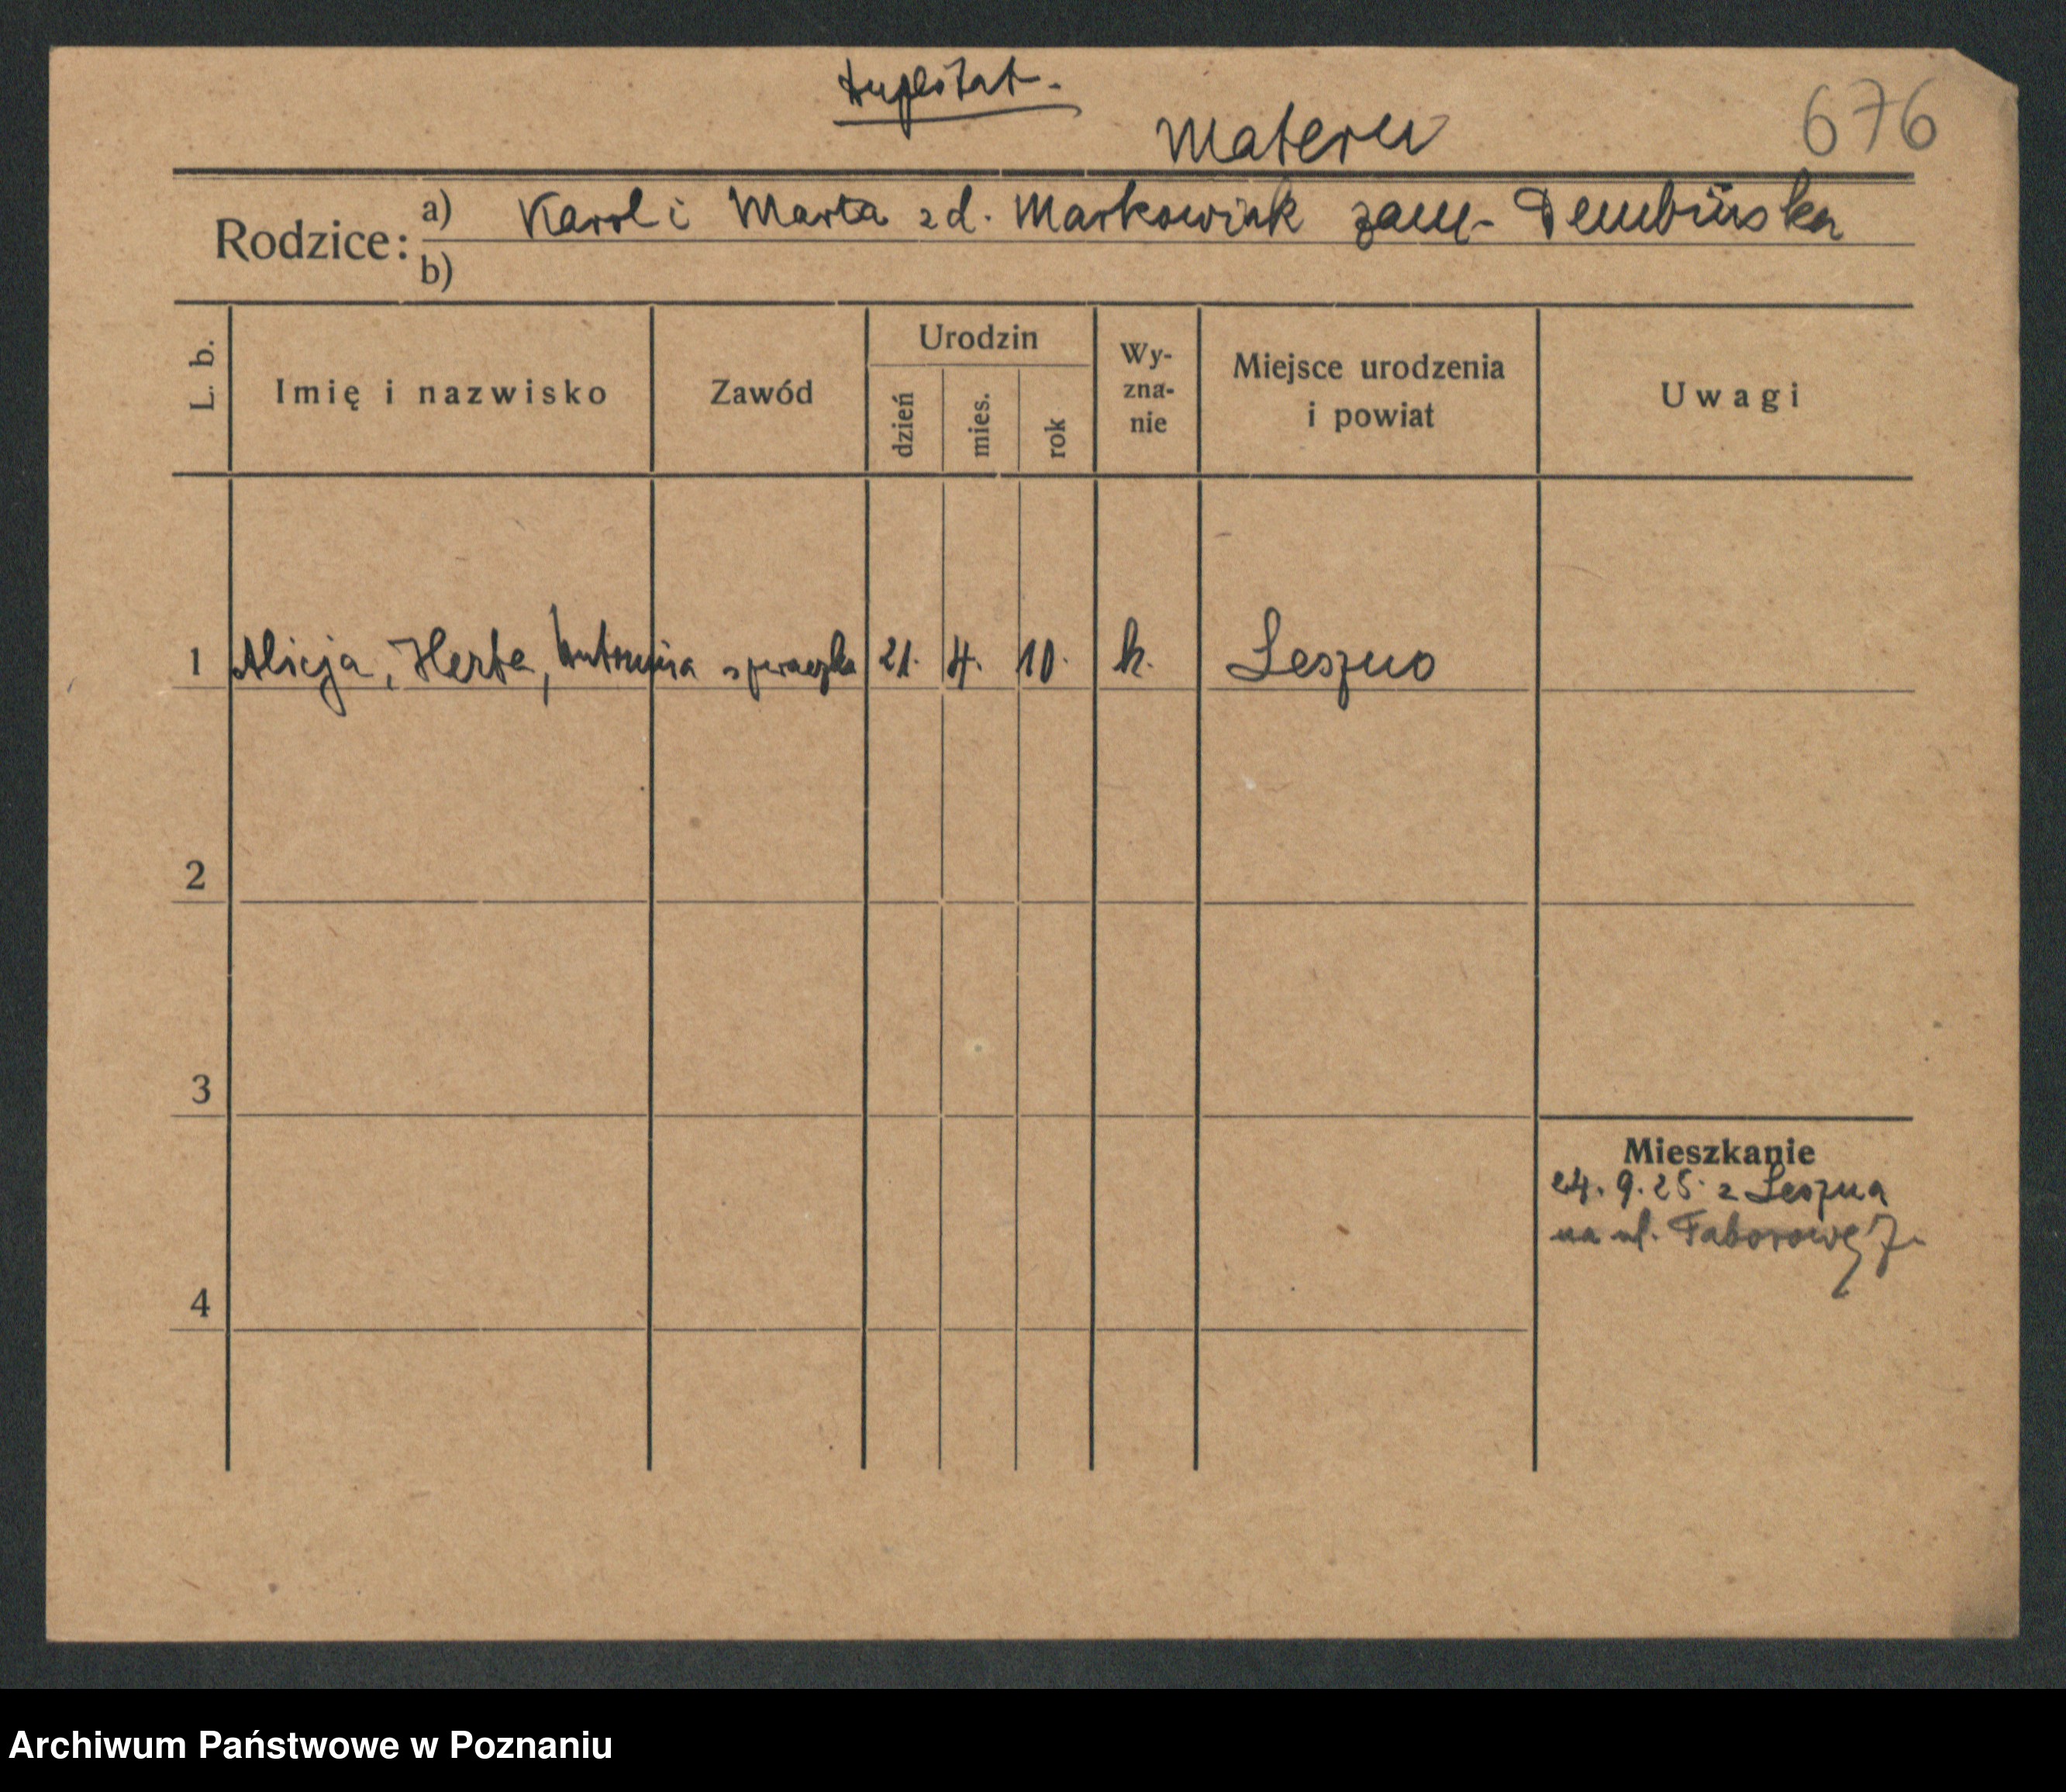 duplikat.
Matern
676
Rodzice:
a) Karol i Marta zd. Markowiak zam. Dembińska
b)
L. b.
Imię i nazwisko
Zawód
Urodzin
dzień
mies.
rok
Wy-
zna-
nie
Miejsce urodzenia
i powiat
Uwagi
1 Alicja, Herta, Antonina 21. 4. 10. k. Leszno
2
3
4
Mieszkanie
24. 9. 25. z Leszna
na ul. Taborową 7.
Archiwum Państwowe w Poznaniu